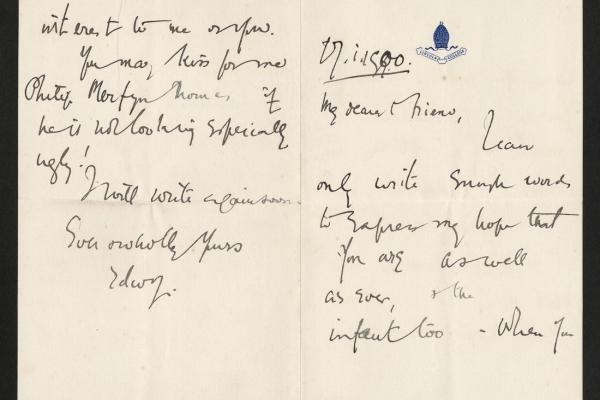 LINCOLN COLLEGE
17.i.1900.
My dearest friend,
I can
only write enough words
to express my hope that
you are as well
as ever, & the
infant too - When you
interest to me or you.
You may kiss for me
Philip Merfyn Thomas if
he is not looking especially
ugly!
I will write again soon.
Ever & wholly yours
Edwy.